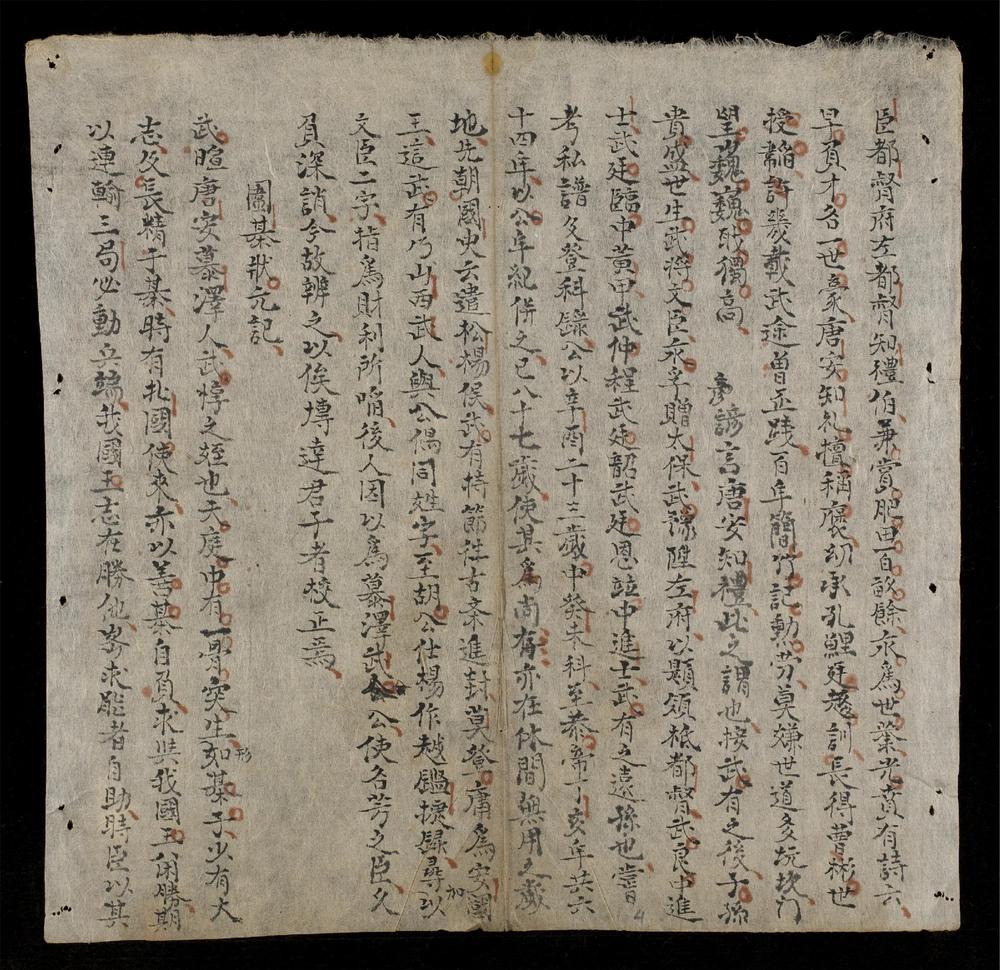 臣都督府左都督知禮伯兼賞肥田百畝餘永爲世業光賁有詩云
早負才名一世豪唐安知礼擅稱褒幼承孔鯉廷趨訓長得曹彬世
授韜許多載武途曾並踐百年簡竹記勲勞莫嫌世道多坑坎門
望巍巍戢獨高　彥諺言唐安知禮此之謂也按武有之後子孫
貴盛世生武將文臣永孚贈太保武豫陞左府以顕頒祗都督武良中進
士武廷臨中黃甲武仲程武廷韶武廷恩竝中進士武有之遠孫也嘗
考私譜及登科錄公以辛酉二十三歲中癸未科至恭帝丁亥年共六
十四年以公年紀併之已八十七歲使其爲尚存亦在休閒無用之歲
地先朝國史云遣松楊侯武有持節往古齋進封莫登庸爲安國
王這武有乃山西武人與公偶同姓字至胡公仕楊作越鑑㨗歸尋加以
文臣二字指爲財利所啗後人因以爲慕澤武公公使名芳之臣久
負深誚今故辨之以俟博達君子者校正焉
圍棊狀元記
武暄唐安慕澤人武惇之姪也天庭中有一骨突生如棊子形少有大
志及長精于棊時有北國使來亦以善棊自負求與我國王閑勝期
以連輸三局必動兵端我國王志在勝他密求能者自助時臣以其